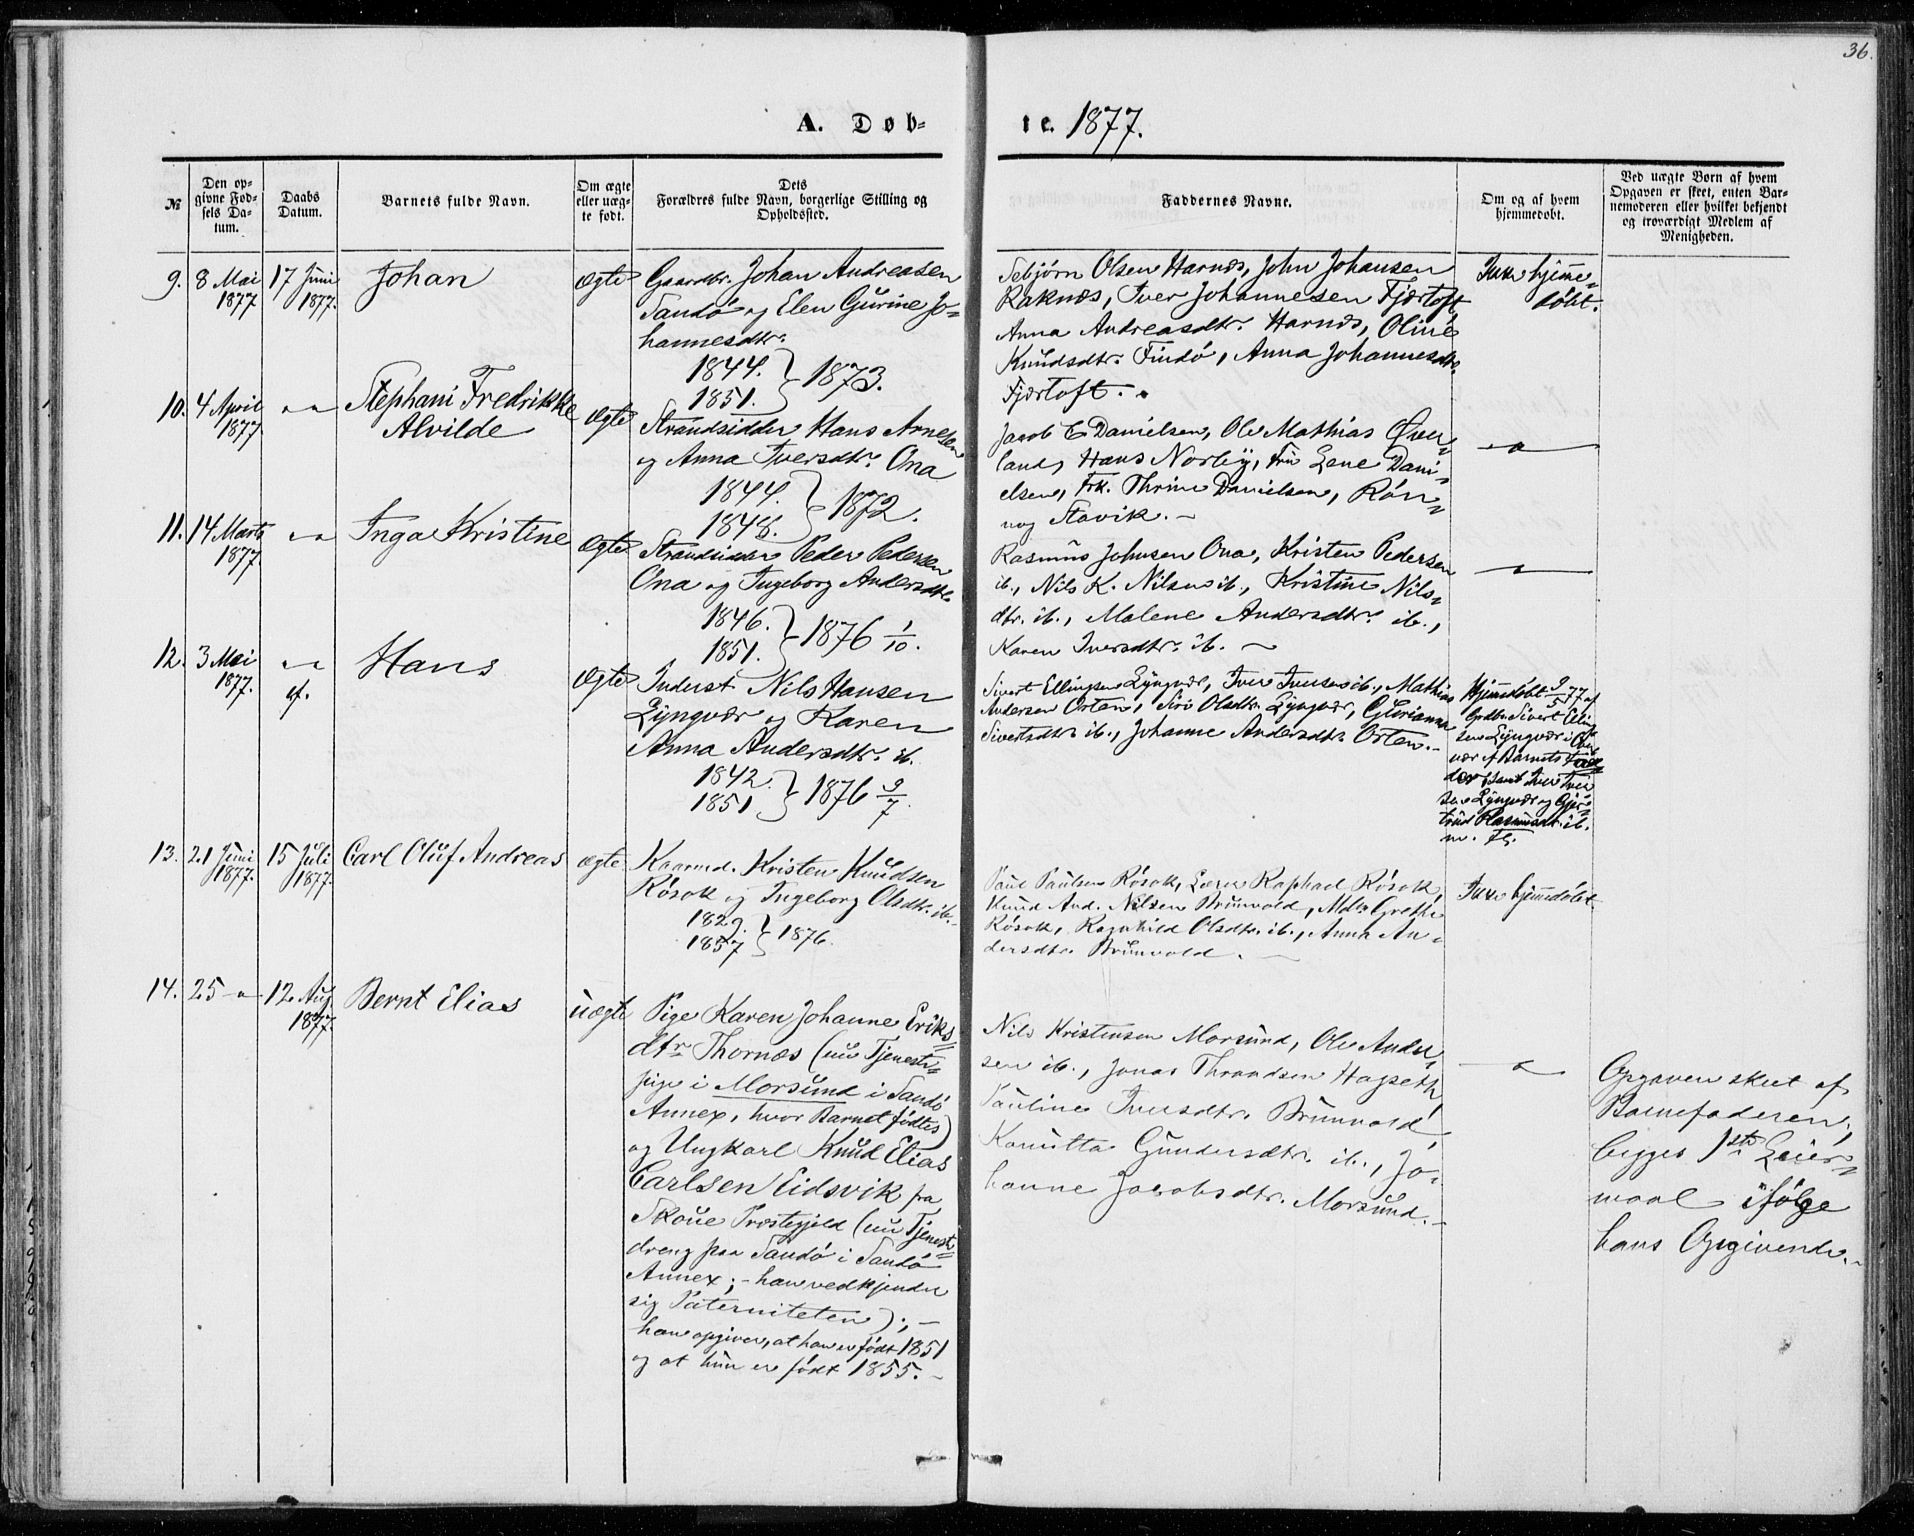 36.
A. Døb-
te. 1877.
№
Den op-
givne Fød-
sels Da-
tum.
Daabs
Datum.
Barnets fulde Navn.
Om ægte
eller uæg-
te født.
Dets
Forældres fulde Navn, borgerlige Stilling og
Opholdssted.
Faddernes Navne.
Om og af hvem
hjemmedøbt.
Ved uægte Børn af hvem
Opgaven er skeet, enten Bar-
nemoderen eller hvilket bekjendt
og troværdigt Medlem af
Menigheden.
9.
8 Mai
1877
17 Juni
1877.
Johan
ægte
Gaardbr. Johan Andreasen
Sandø og Elen Gurine Jo-
hannesdtr.
1844. } 1873.
1851.
Sebjørn Olsen Harnæs, John Johansen
Raknæs, Iver Johannesen Fjærtoft,
Anna Andreasdtr. Harnæs, Oline
Knudsdtr. Findø, Anna Johannesdtr.
Fjærtoft.
Ikke hjemme-
døbt.
10.
4 April
1877.
"
Stephani Fredrikke
Alvilde
ægte
Strandsidder Hans Arnesen
og Anna Iversdtr. Ona
1844. } 1872.
1848.
Jacob E Danielsen, Ole Mathias Øver-
land, Hans Norbÿ, Fru Lene Dani-
elsen, Frk. Thrine Danielsen, Røn-
nog Stavik. -
- " -
11.
14 Marts
1877.
"
Inga Kristine
ægte
Strandsidder Peder Pedersen
Ona og Ingeborg Andersdtr.
1846. } 1876 1/10.
1851.
Rasmus Johnsen Ona, Kristen Pedersen
ib., Nils K. Nilsen ib., Kristine Nils-
dtr. ib., Malene Andersdtr. ib.,
Karen Iversdtr. ib. -
- " -
12.
3 Mai
1877.
"
cf.
Hans
ægte
Inderst Nils Hansen
Lyngvær og Karen
Anna Andersdtr. ib.
1842. } 1876 9/7.
1851
Sivert Ellingsen Lyngvær, Iver Iversen ib., Mathias
Andersen Orten, Siri Olsdtr. Lyngvær, Glorianna
Sivertsdtr. ib., Johanne Andersdtr. Orten. -
Hjemmedøbt 9/5 77 af
Grdbr. Sivert Elling-
sen Lyngvær i Over-
vær af Barnets Fa-
der samt Iver Iver-
sen Lyngvær og Gjer-
trud Rasmusdtr. ib.
m. fl.
13.
21 Juni
1877.
15 Juli
1877.
Carl Oluf Andreas
ægte
Kaarmd. Kristen Knudsen
Røsok og Ingeborg Olsdtr. ib.
1829. } 1876.
1857
Paul Paulsen Røsok, Lærer Raphael Røsok,
Knud And. Nilsen Brunvold, Mdm Grethe
Røsok, Ragnhild Olsdtr. ib., Anna An-
dersdtr. Brunvold. -
Ikke hjemmedøbt.
14.
25 - " -
12. Aug
1877.
Bernt Elias
uægte
Pige Karen Johanne Eriks-
dtr Thornæs (nu Tjeneste-
pige i Morsund i Sandø
Annex, hvor Barnet fødtes)
og Ungkarl Knud Elias
Carlsen Eidsvik fra
Skoue Præstegjeld (nu Tjeneste-
dreng paa Sandø i Sandø
Annex; - han vedkjender
sig Paterniteten); -
han opgiver, at han er født 1851
og at hun er født 1855. -
Nils Kristensen Morsund, Ole Ander-
sen ib., Jonas Thrandsen Hagseth,
Pauline Iversdtr. Brunvold,
Kanutta Gundersdtr. ib., Jo-
hanne Jacobsdtr. Morsund. -
- " -
Opgaven skeet af
Barnefaderen,
begges 1ste Leier-
maal ifølge
hans Opgivende. -